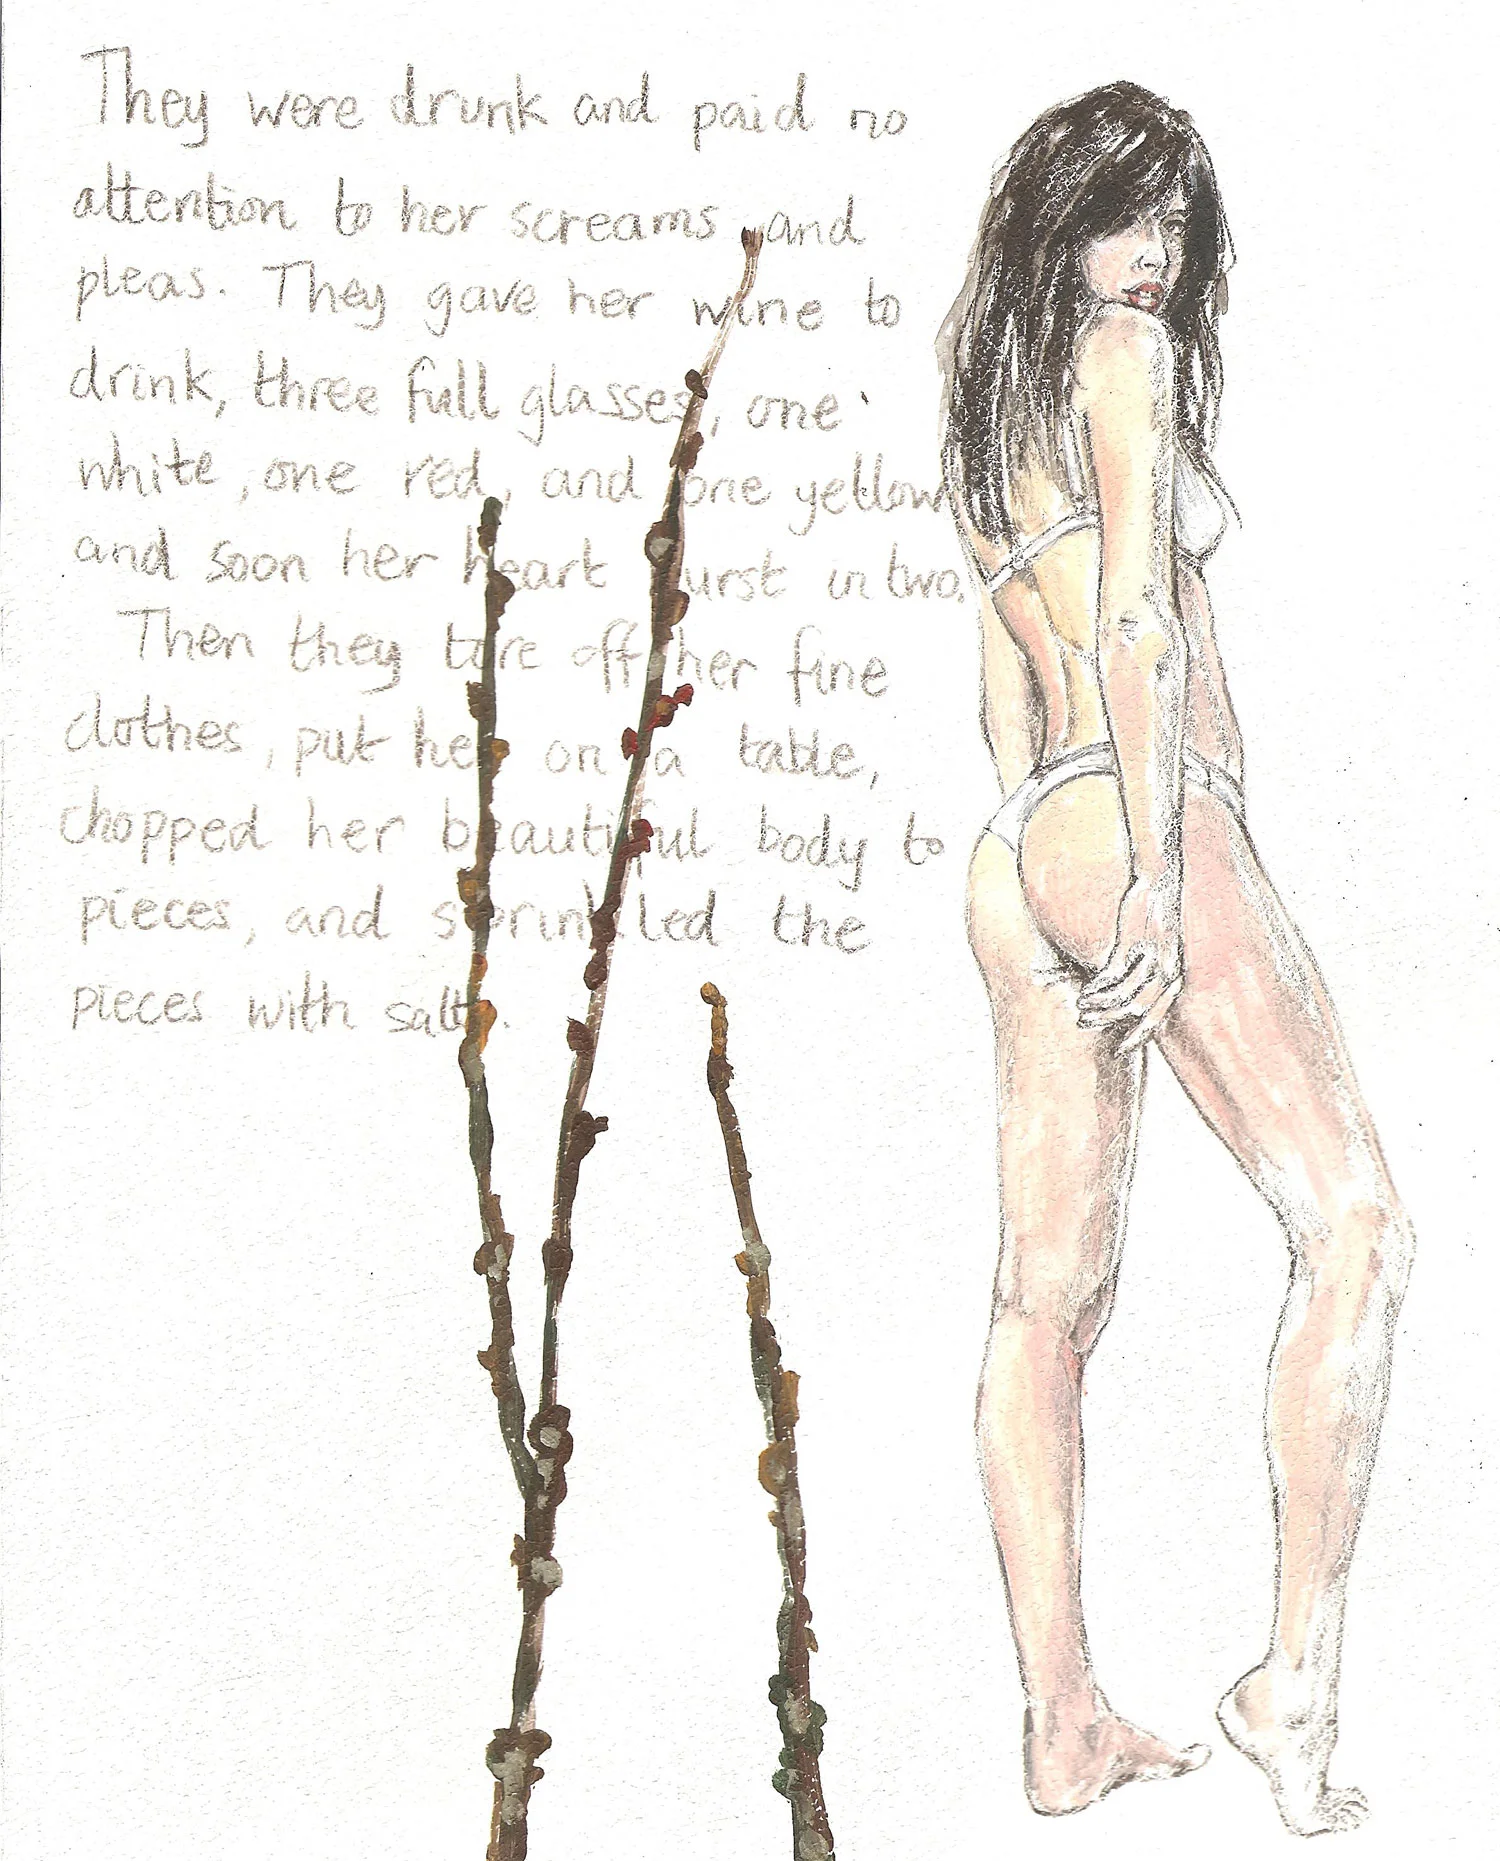 They were drunk and paid no
attention to her screams and
pleas. They gave her wine to
drink, three full glasses, one
white, one red, and one yellow
and soon her heart urst in two.
Then they tore off her fine
clothes, put her on a table,
chopped her beautiful body to
pieces, and sprinkled the
pieces with salt.